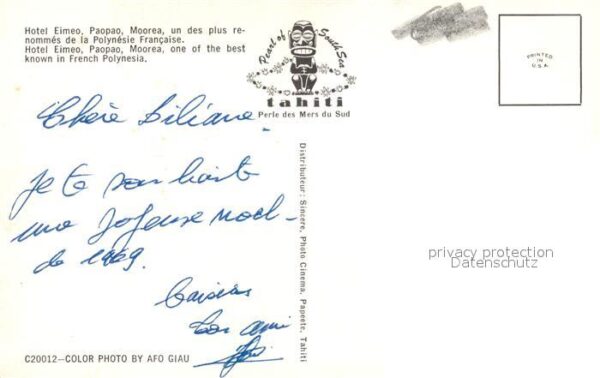 Hotel Eimeo, Paopao, Moorea, un des plus re-
nommés de la Polynésie Française.
Hotel Eimeo, Paopao, Moorea, one of the best
known in French Polynesia.
Pearl of South Sea
tahiti
Perle des Mers du Sud
PRINTED
IN
U.S.A.
Chère Liliane.
Je te souhaite
une Joyeuse noël -
de 1969.
ton ami
Distributeur: Sincere, Photo Cinema, Papeete, Tahiti
privacy protection
Datenschutz
C20012—COLOR PHOTO BY AFO GIAU